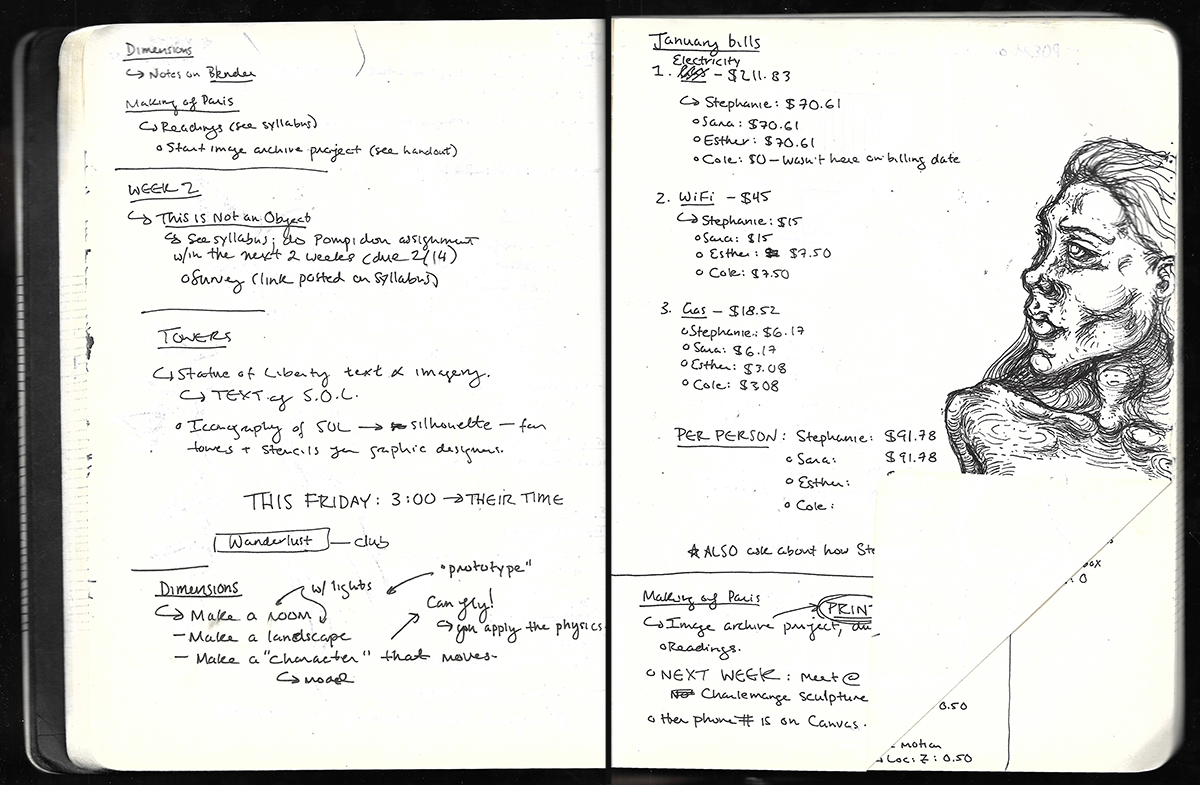 Dimensions
↳ Notes on Blender
Making of Paris
↳ Readings (see syllabus)
o Start image archive project (see handout)
WEEK 2
↳ This is Not an Object
↳ See syllabus; do Pompidou assignment
w/in the next 2 weeks (due 2/14)
o Survey (link posted on syllabus)
TOWERS
↳ Statue of Liberty text & imagery.
↳ TEXT of S.O.L.
o Iconography of SOL → silhouette — fan
towers + stencils graphic designers.
THIS FRIDAY: 3:00 → THEIR TIME
Wanderlust — club
DIMENSIONS
w/ lights
"prototype"
↳ Make a room
Can fly!
↳ you apply the physics
— Make a landscape
— Make a "character" that moves
↳ model
January bills
Electricity
1. – $211.83
↳ Stephanie: $70.61
o Sara: $70.61
o Esther: $70.61
o Cole: $0 – wasn't here on billing date
2. WiFi – $45
↳ Stephanie: $15
o Sara: $15
o Esther: $7.50
o Cole: $7.50
3. Gas – $18.52
o Stephanie: $6.17
o Sara: $6.17
o Esther: $3.08
o Cole: $3.08
PER PERSON: Stephanie: $91.78
o Sara: $91.78
o Esther:
o Cole:
☆ ALSO ask about how Ste
Making of Paris
PRIN
↳ Image archive project, du
o Readings.
o NEXT WEEK: meet @
Charlemange sculpture
o Her phone # is on Canvas.
box
: 0
0.50
Motion
Loc: Z: 0.50